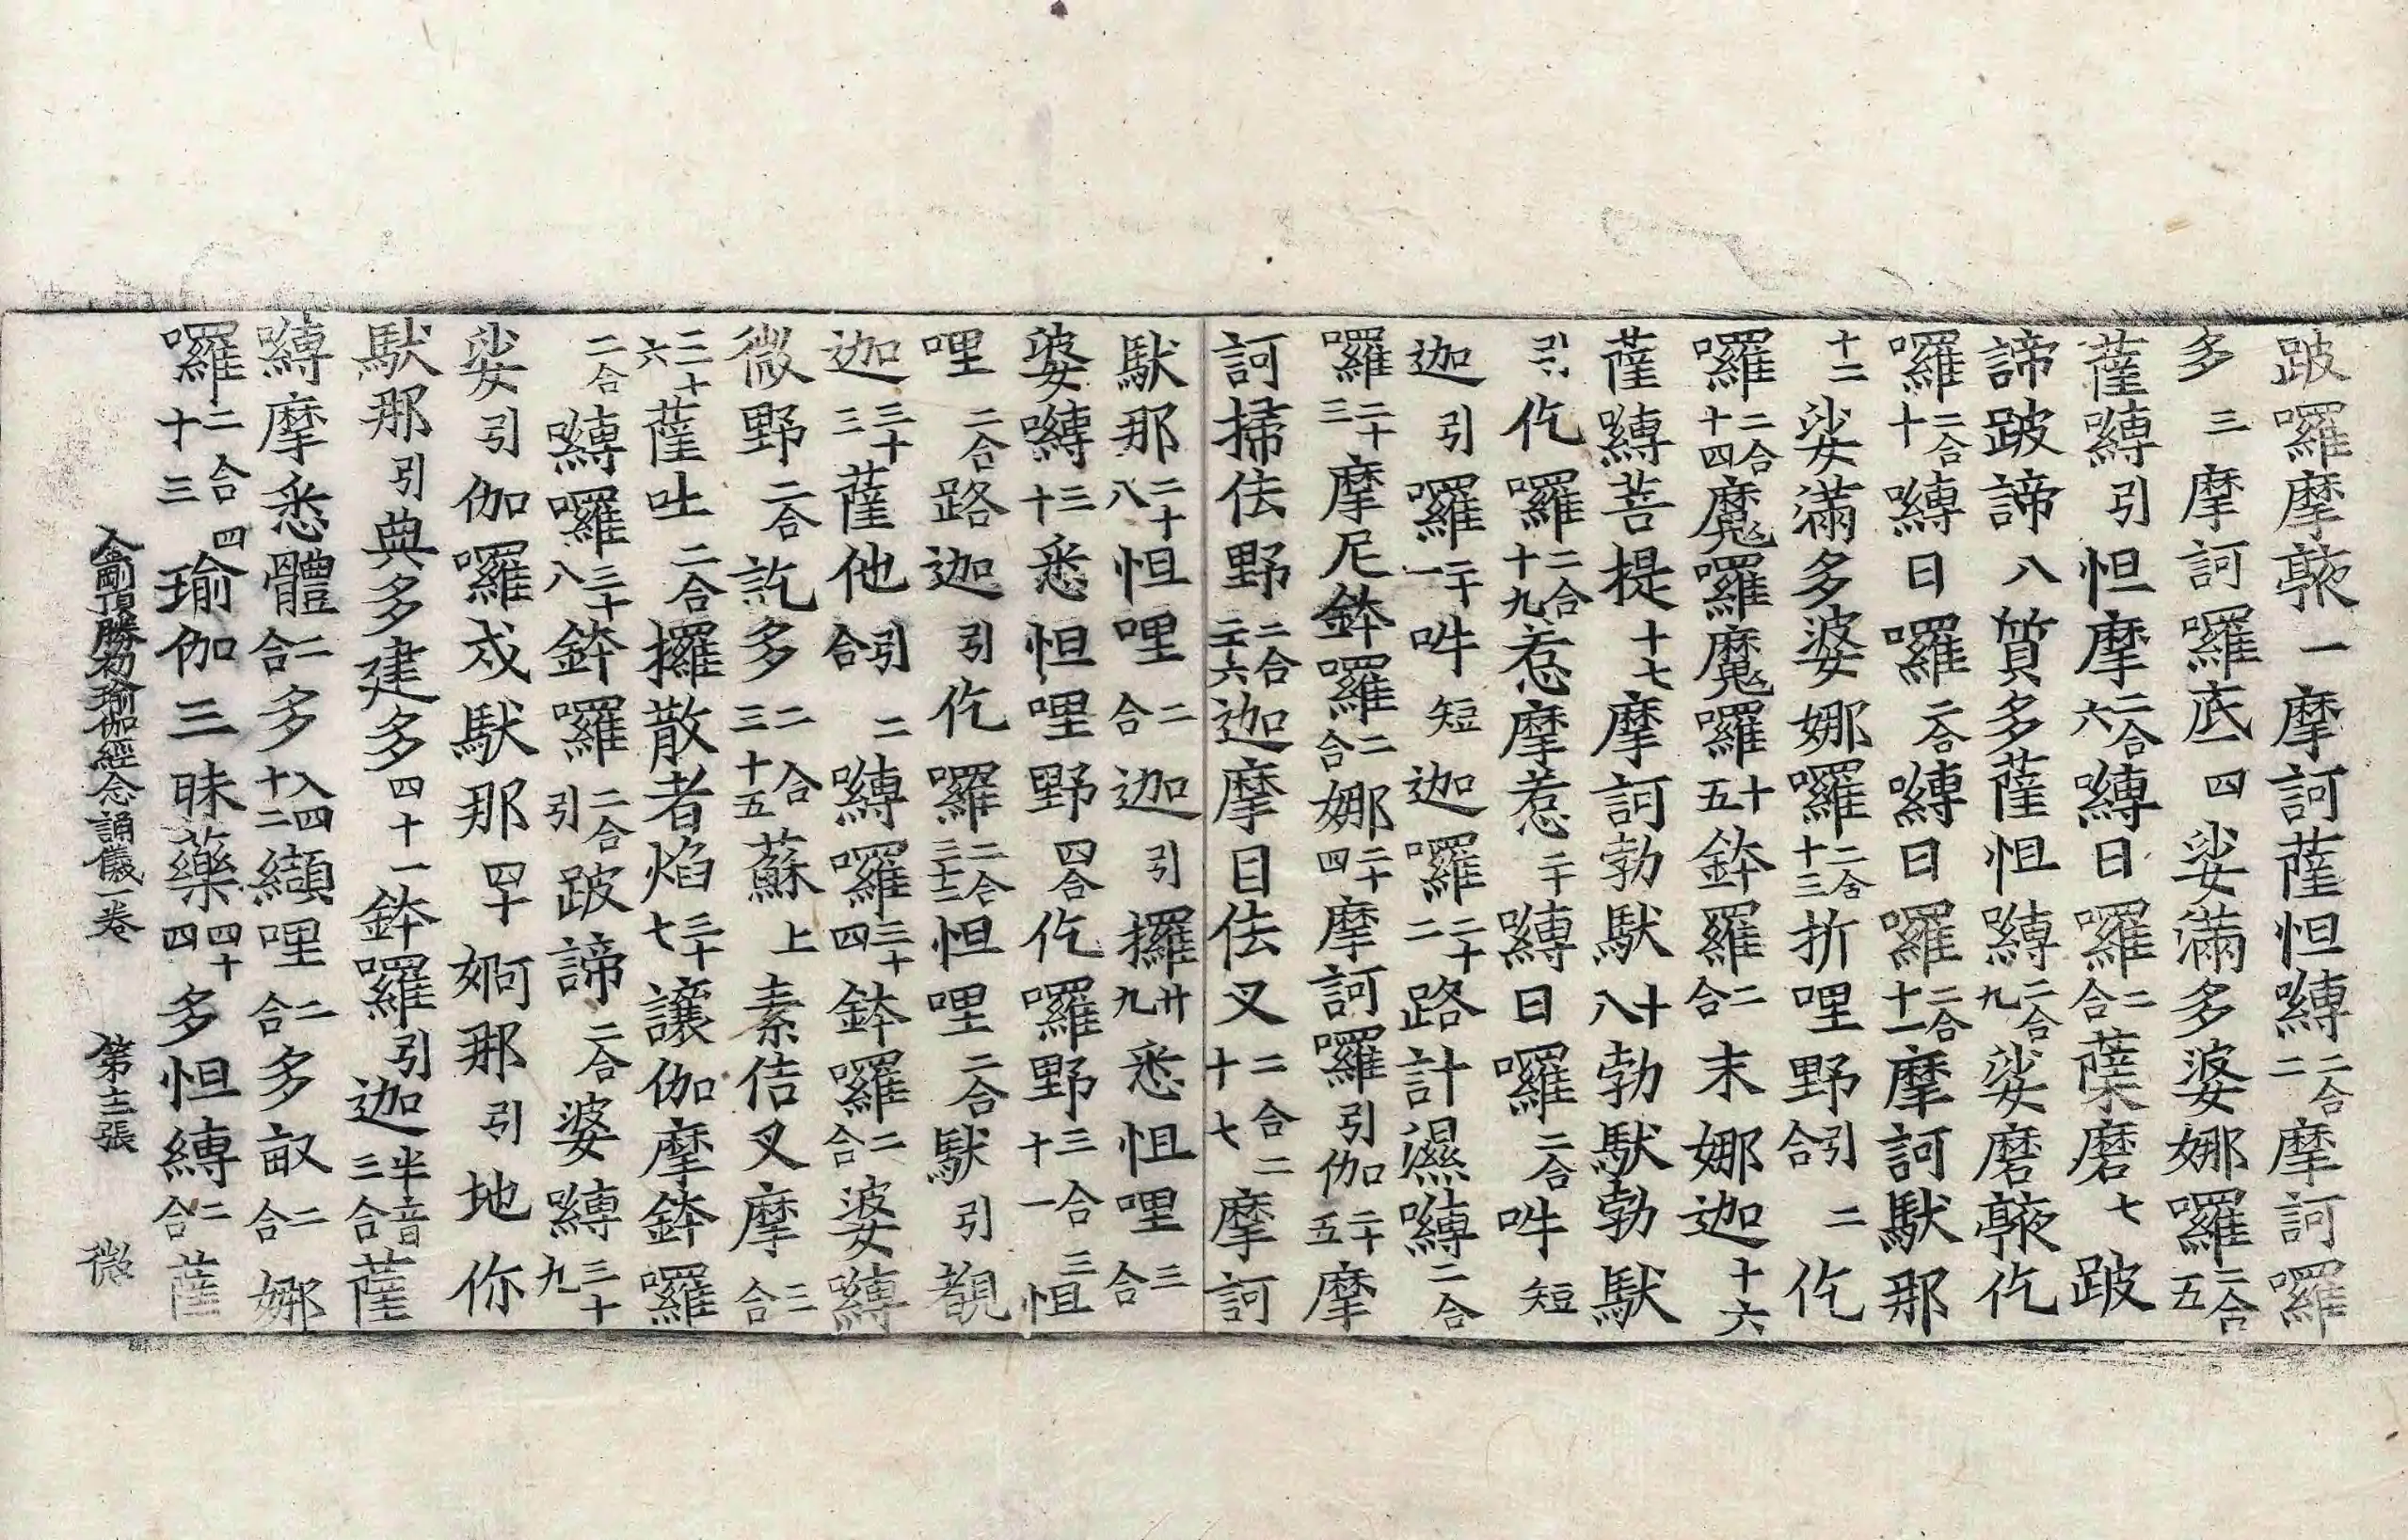 跛囉摩㰠一摩訶薩怛嚩二合二摩訶囉
多三摩訶囉底四娑滿多婆娜囉二合五
薩嚩引怛摩二合六嚩日囉二合薩磨七跛
諦跛諦八質多薩怛嚩二合九娑磨㰠仡
囉二合十嚩日囉二合嚩日囉二合十一摩訶馱那
十二娑滿多婆娜囉二合十三折哩野引二合仡
囉二合十四魔囉魔囉十五鉢羅二合末娜迦十六
薩嚩菩提十七摩訶勃馱十八勃馱勃馱
引仡囉二合十九惹摩惹二十嚩日囉二合吽短
迦引囉二十一吽短迦囉二十二路計濕嚩二合
囉二十三摩尼鉢囉二合娜二十四摩訶囉引伽二十五摩
訶掃佉野二合二十六迦摩目佉叉二合二十七摩訶
馱那二十八怛哩二合迦引攞廿九悉怛哩三合
婆嚩三十悉怛哩野四合仡囉野三合三十一怛
哩二合路迦引仡囉二合三十二怛哩二合馱引覩
迦三十三薩他引二合嚩囉三十四鉢羅二合婆嚩
微野二合訖多二合三十五蘇上素佶叉摩三合
三十六薩吐二合攞散者焰三十七讓伽摩鉢囉
二合嚩囉三十八鉢羅二合引跛諦二合婆嚩三十九
娑引伽囉戍馱那四十婀那引地你
馱那引典多建多四十一鉢囉引迦半音三合薩
嚩摩悉體二合多入四十二纈哩二合多畝二合娜
囉二合四十三瑜伽三昧藥四十四多怛嚩二合薩
金剛頂勝初瑜伽經念誦儀一卷 第十二張 微